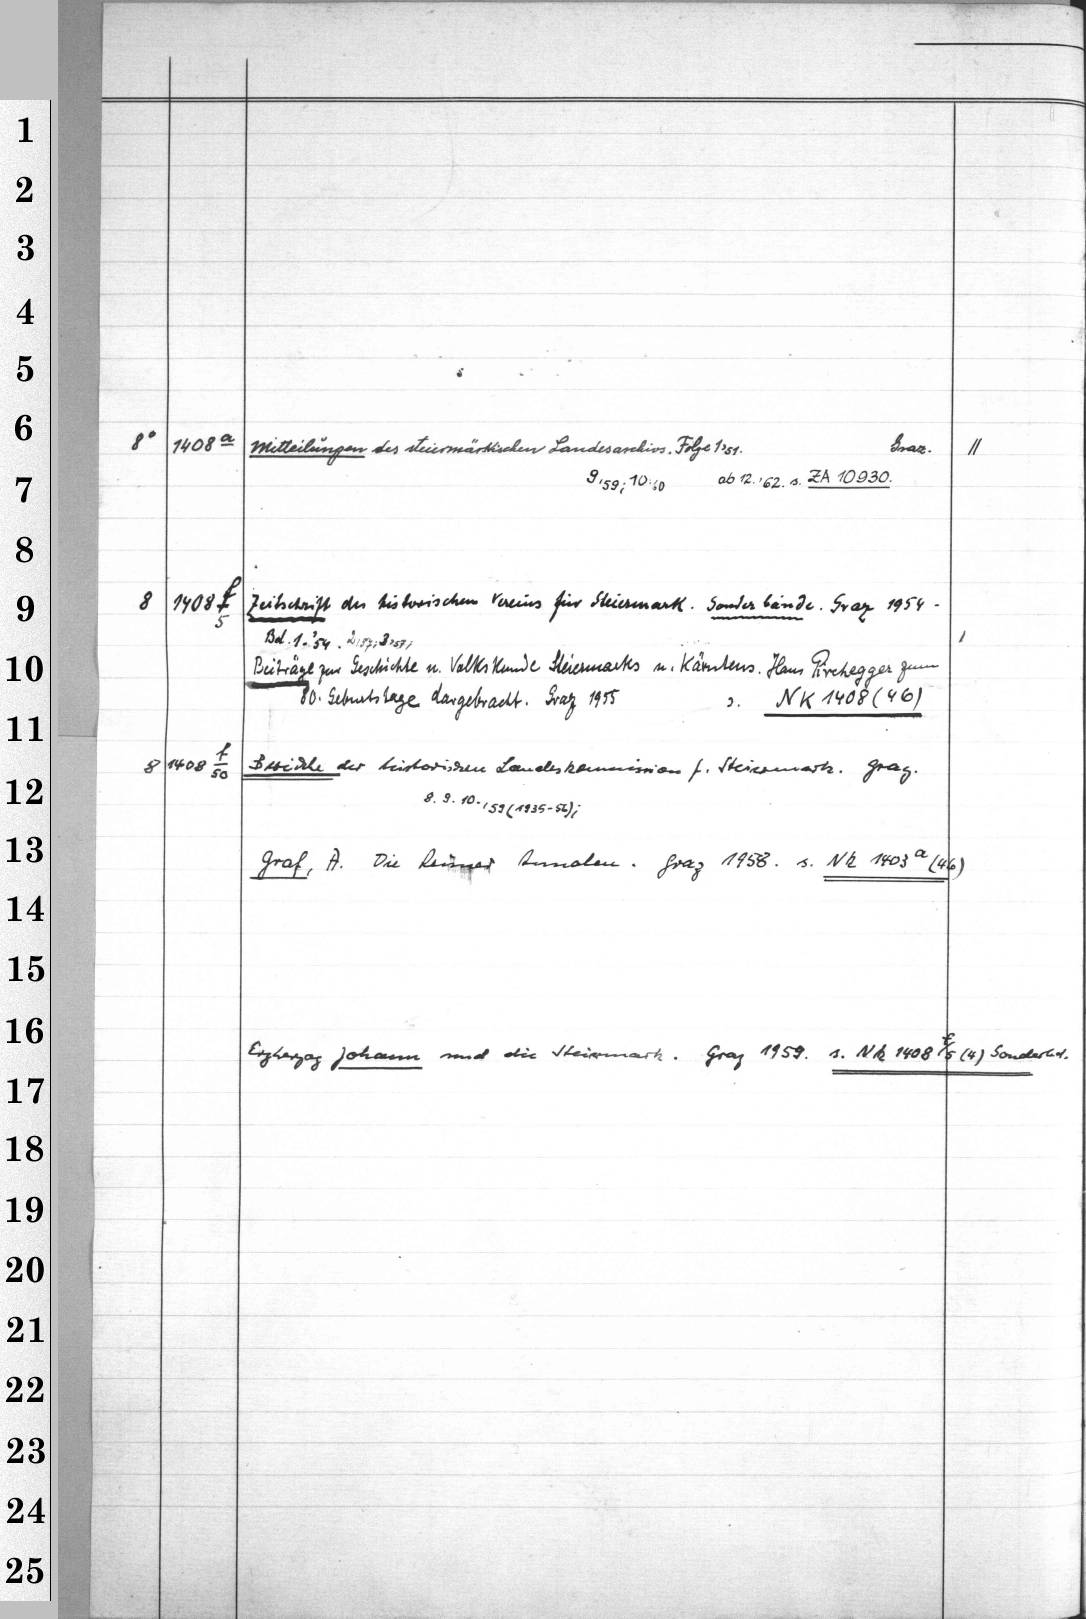 1
2
3
4
5
6
8° 1408 a Mitteilungen des steiermärkischen Landesarchivs. Folge 1,'51. Graz. //
7
9,'59; 10,'60 ab 12.,'62. s. ZA 10930.
8
9
8 1408 f/5 Zeitschrift des historischen Vereins für Steiermark. Sonderbände. Graz 1954 -
Bd. 1.-'54. 2,'57; 3,'57;
10
Beiträge zur Geschichte u. Volkskunde Steiermarks u. Kärntens. Hans Pirchegger zum
80. Geburtstage dargebracht. Graz 1955 s. NK 1408 (46)
11
8 1408 f/50 Berichte der historischen Landeskommission f. Steiermark. Graz.
12
8. 9. 10.,'59 (1935-56);
13
Graf, A. Die Reuner Annalen. Graz 1958. s. Nk 1403 a (46)
14
15
16
Erzherzog Johann und die Steiermark. Graz 1959. s. Nk 1408 f/5 (4) Sonderbd.
17
18
19
20
21
22
23
24
25